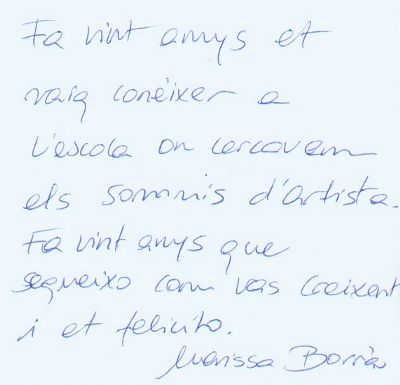 Fa vint anys et
vaig conèixer a
l'escola on cercavem
els somnis d'artista.
Fa vint anys que
segueixo com vas creixent
i et felicito.
Marissa Borràs